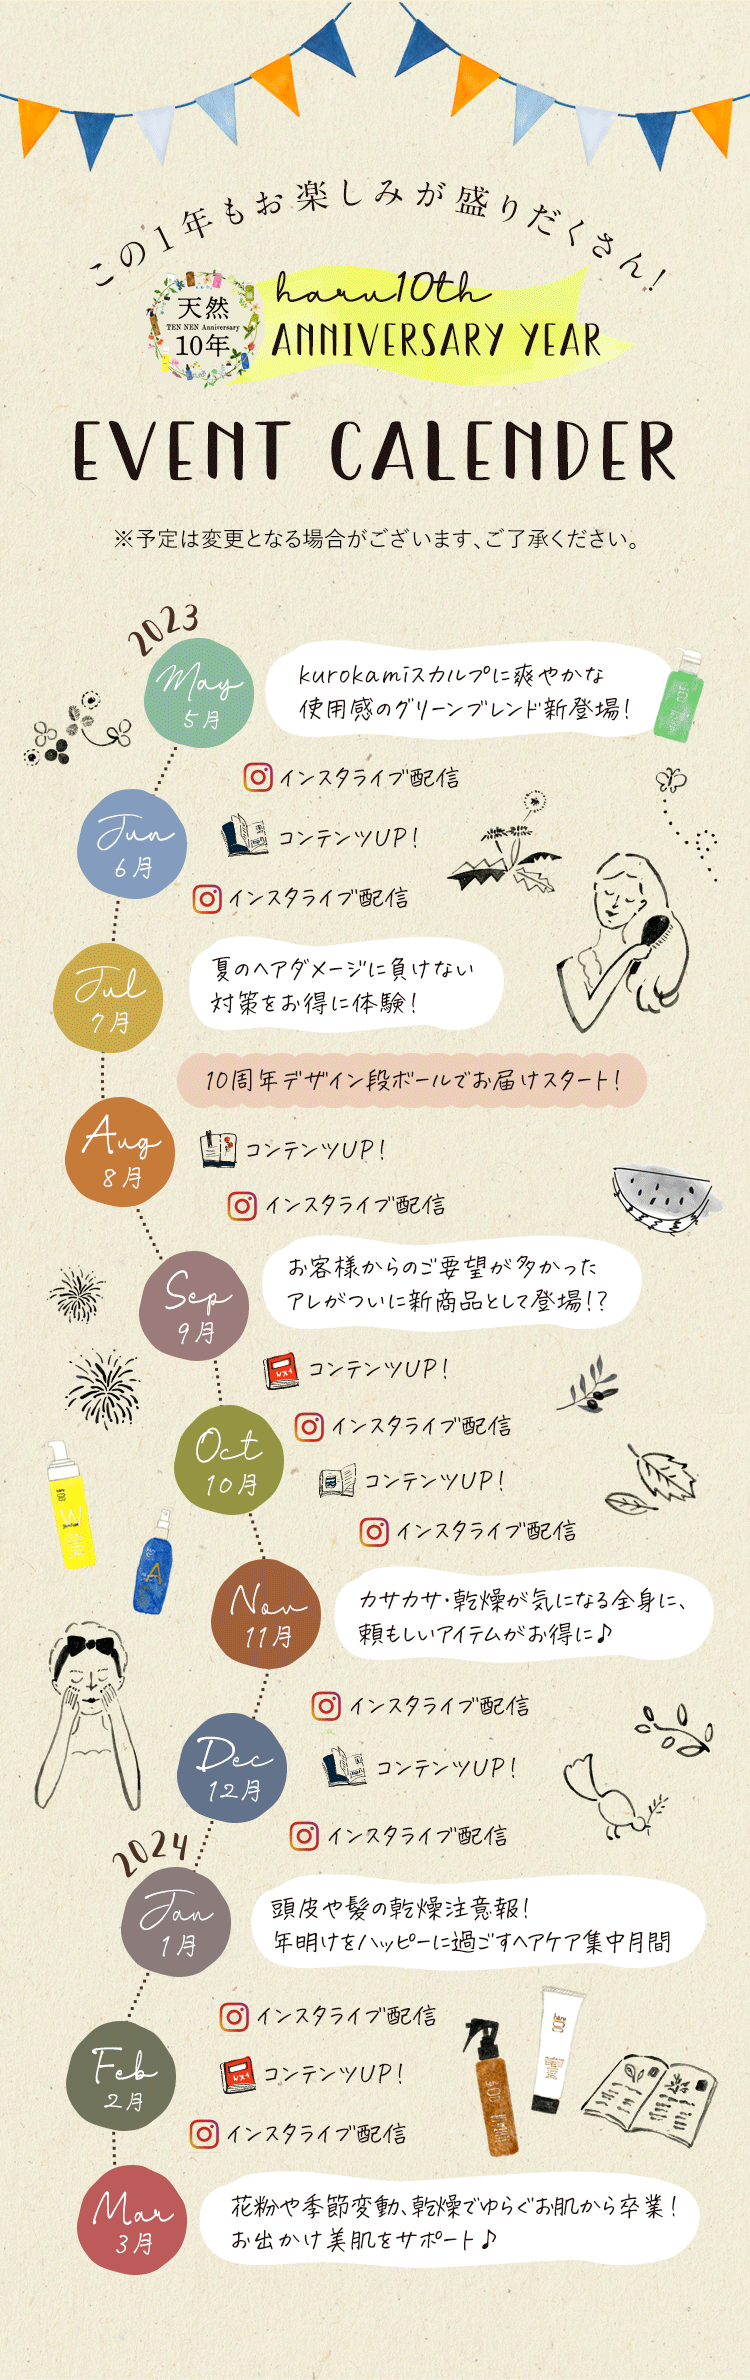 この1年もお楽しみが盛りだくさん!
天然
TEN NEN Anniversary
10年
haru10th
ANNIVERSARY YEAR
EVENT CALENDER
※予定は変更となる場合がございます、ご了承ください。
2023
May
5月
kurokamiスカルプに爽やかな
使用感のグリーンブレンド新登場!
インスタライブ配信
Jun
6月
コンテンツUP!
インスタライブ配信
Jul
7月
夏のヘアダメージに負けない
対策をお得に体験!
10周年デザイン段ボールでお届けスタート!
Aug
8月
コンテンツUP!
インスタライブ配信
Sep
9月
お客様からのご要望が多かった
アレがついに新商品として登場!?
コンテンツUP!
Oct
10月
インスタライブ配信
コンテンツUP!
インスタライブ配信
Nov
11月
カサカサ・乾燥が気になる全身に、
頼もしいアイテムがお得に♪
インスタライブ配信
Dec
12月
コンテンツUP!
インスタライブ配信
2024
Jan
1月
頭皮や髪の乾燥注意報!
年明けをハッピーに過ごすヘアケア集中月間
インスタライブ配信
Feb
2月
コンテンツUP!
インスタライブ配信
Mar
3月
花粉や季節変動、乾燥でゆらぐお肌から卒業!
お出かけ美肌をサポート♪